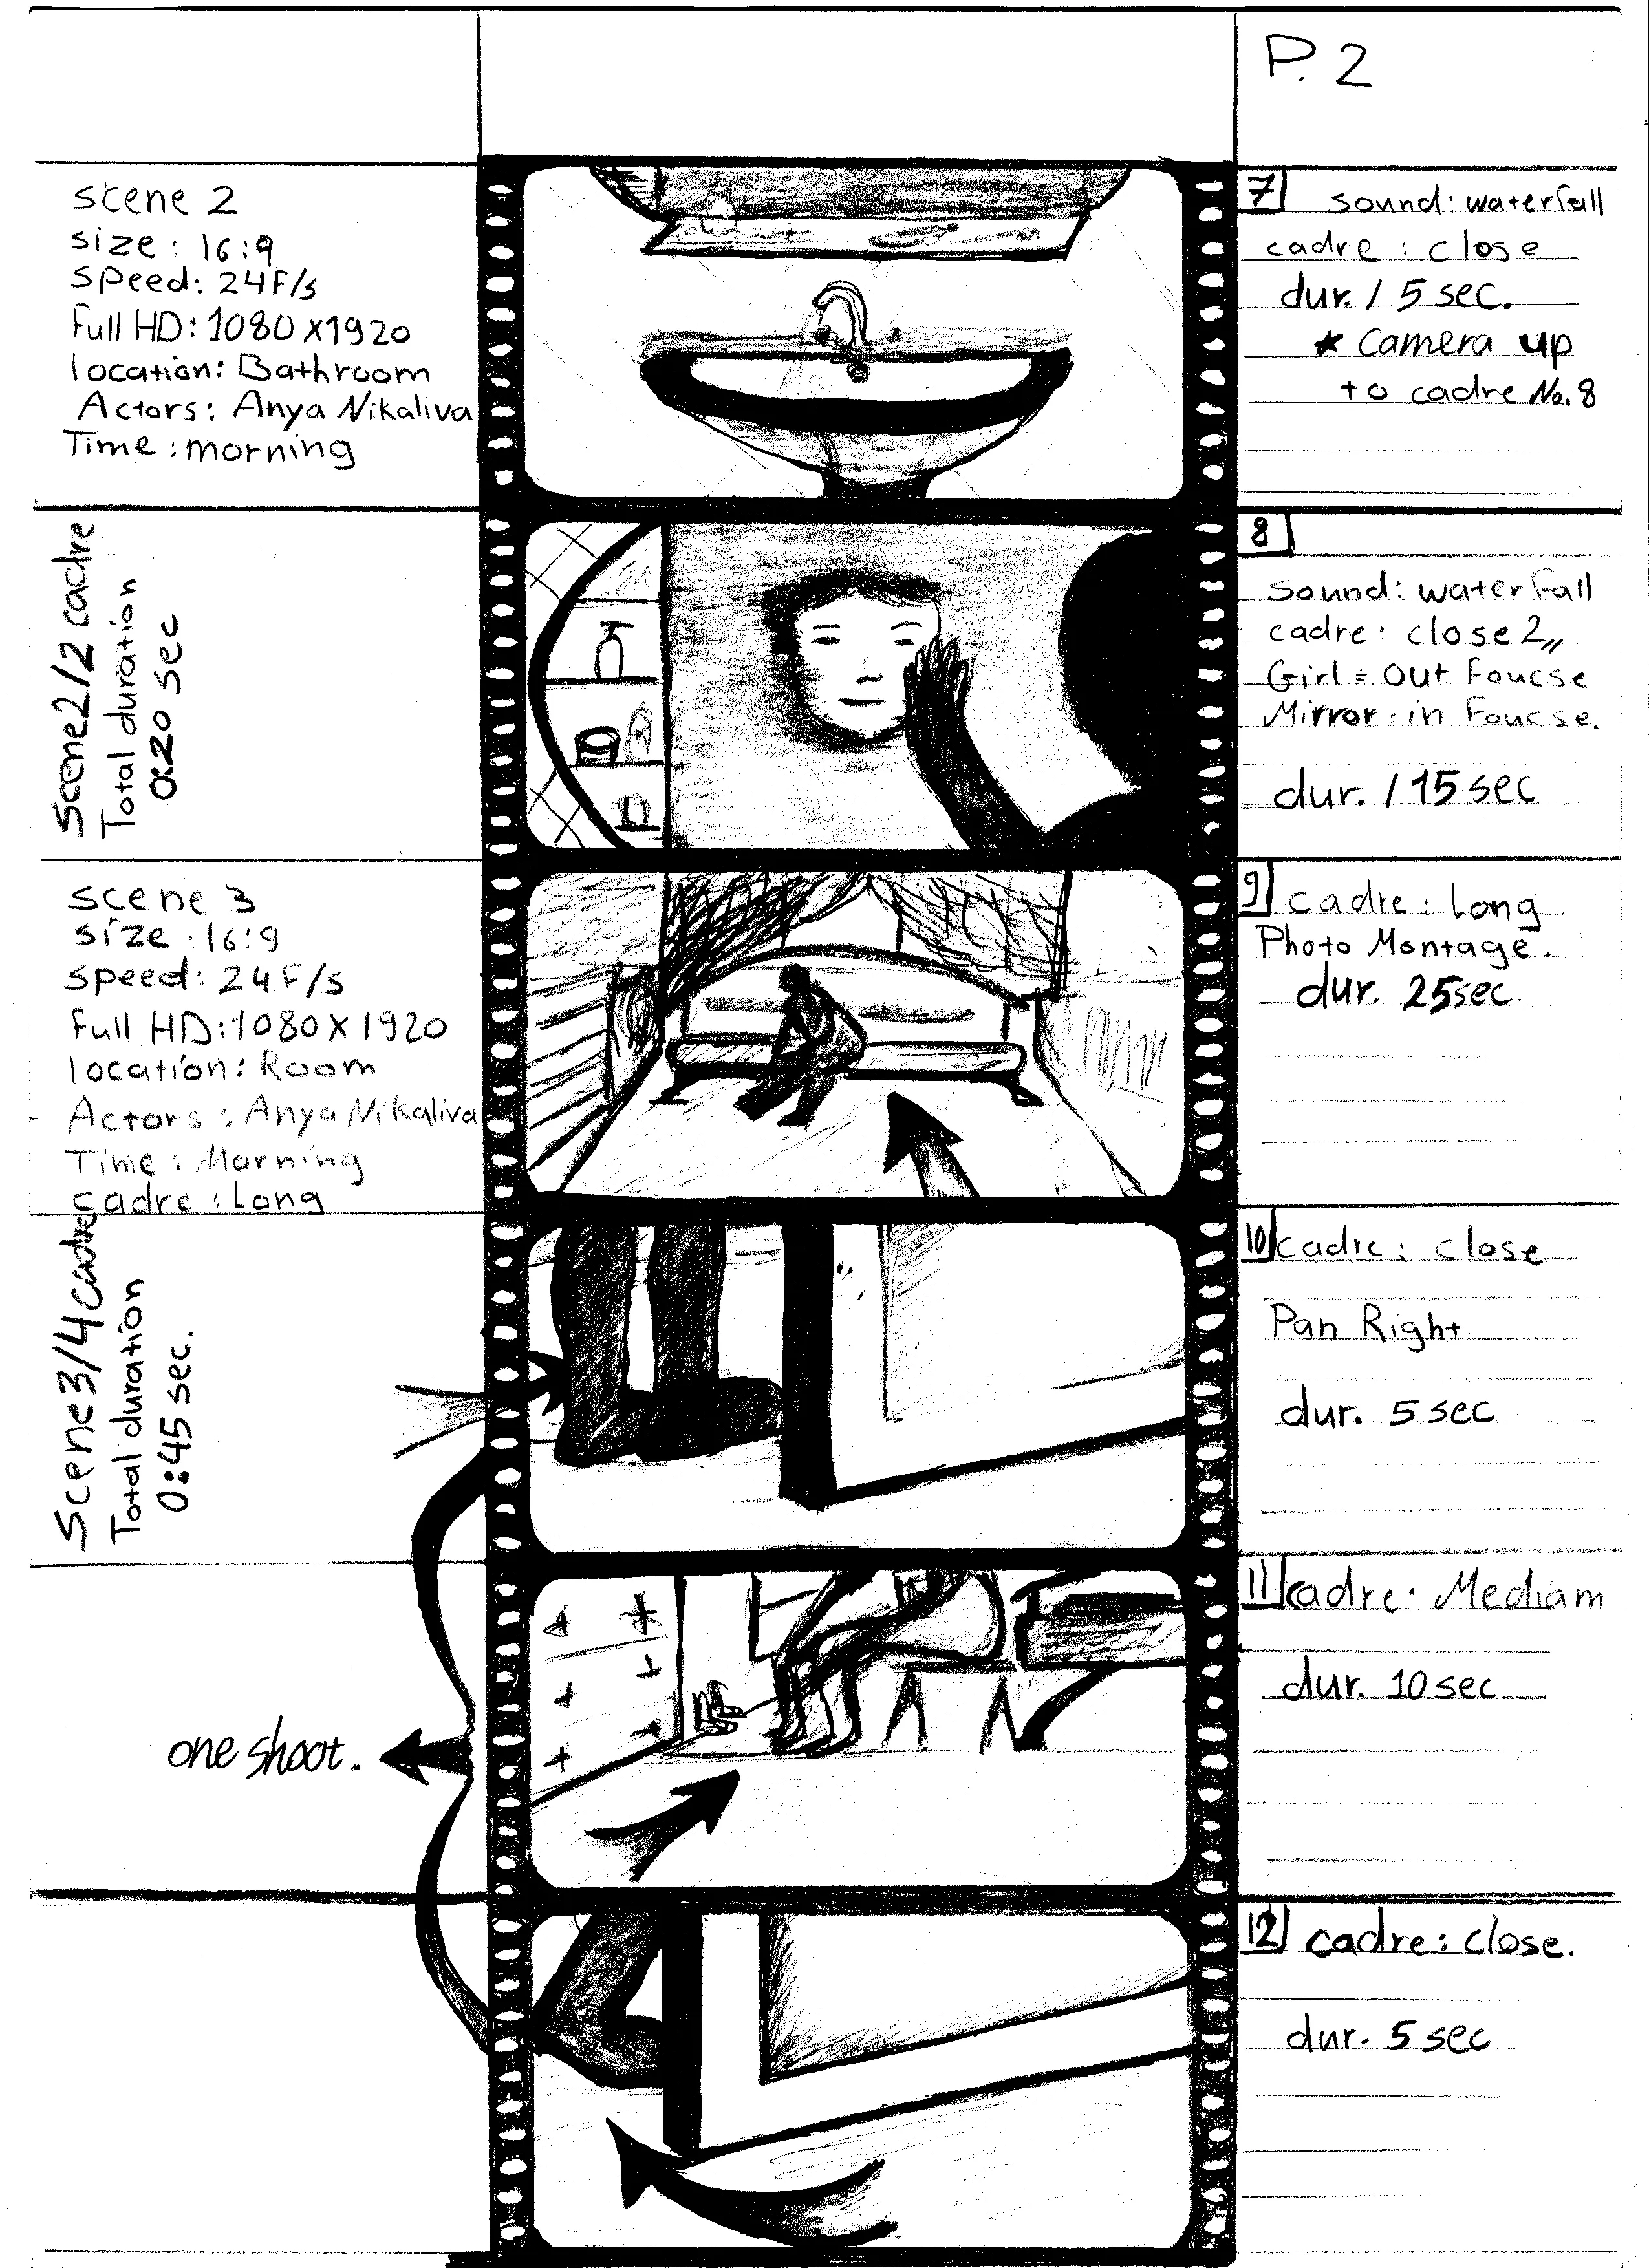 P. 2
scene 2
size: 16:9
speed: 24F/s
full HD: 1080x1920
location: Bathroom
Actors: Anya Nikaliva
Time: morning
7
sound: waterfall
cadre: close
dur. / 5 sec.
* Camera up
to cadre No. 8
Scene2/2 cadre
Total duration
0:20 sec
8
Sound: waterfall
cadre: close 2,,
Girl = Out Foucse
Mirror: in Foucse.
dur. / 15 sec
scene 3
size: 16:9
speed: 24F/s
full HD: 1080X1920
location: Room
Actors: Anya Nikaliva
Time: Morning
cadre: Long
9
cadre: Long
Photo Montage.
dur. 25sec.
Scene3/4cadre
Total duration
0:45 sec.
10
cadre: close
Pan Right
dur. 5 sec
11
cadre: Mediam
dur. 10 sec
one shoot.
12
cadre: close.
dur. 5 sec